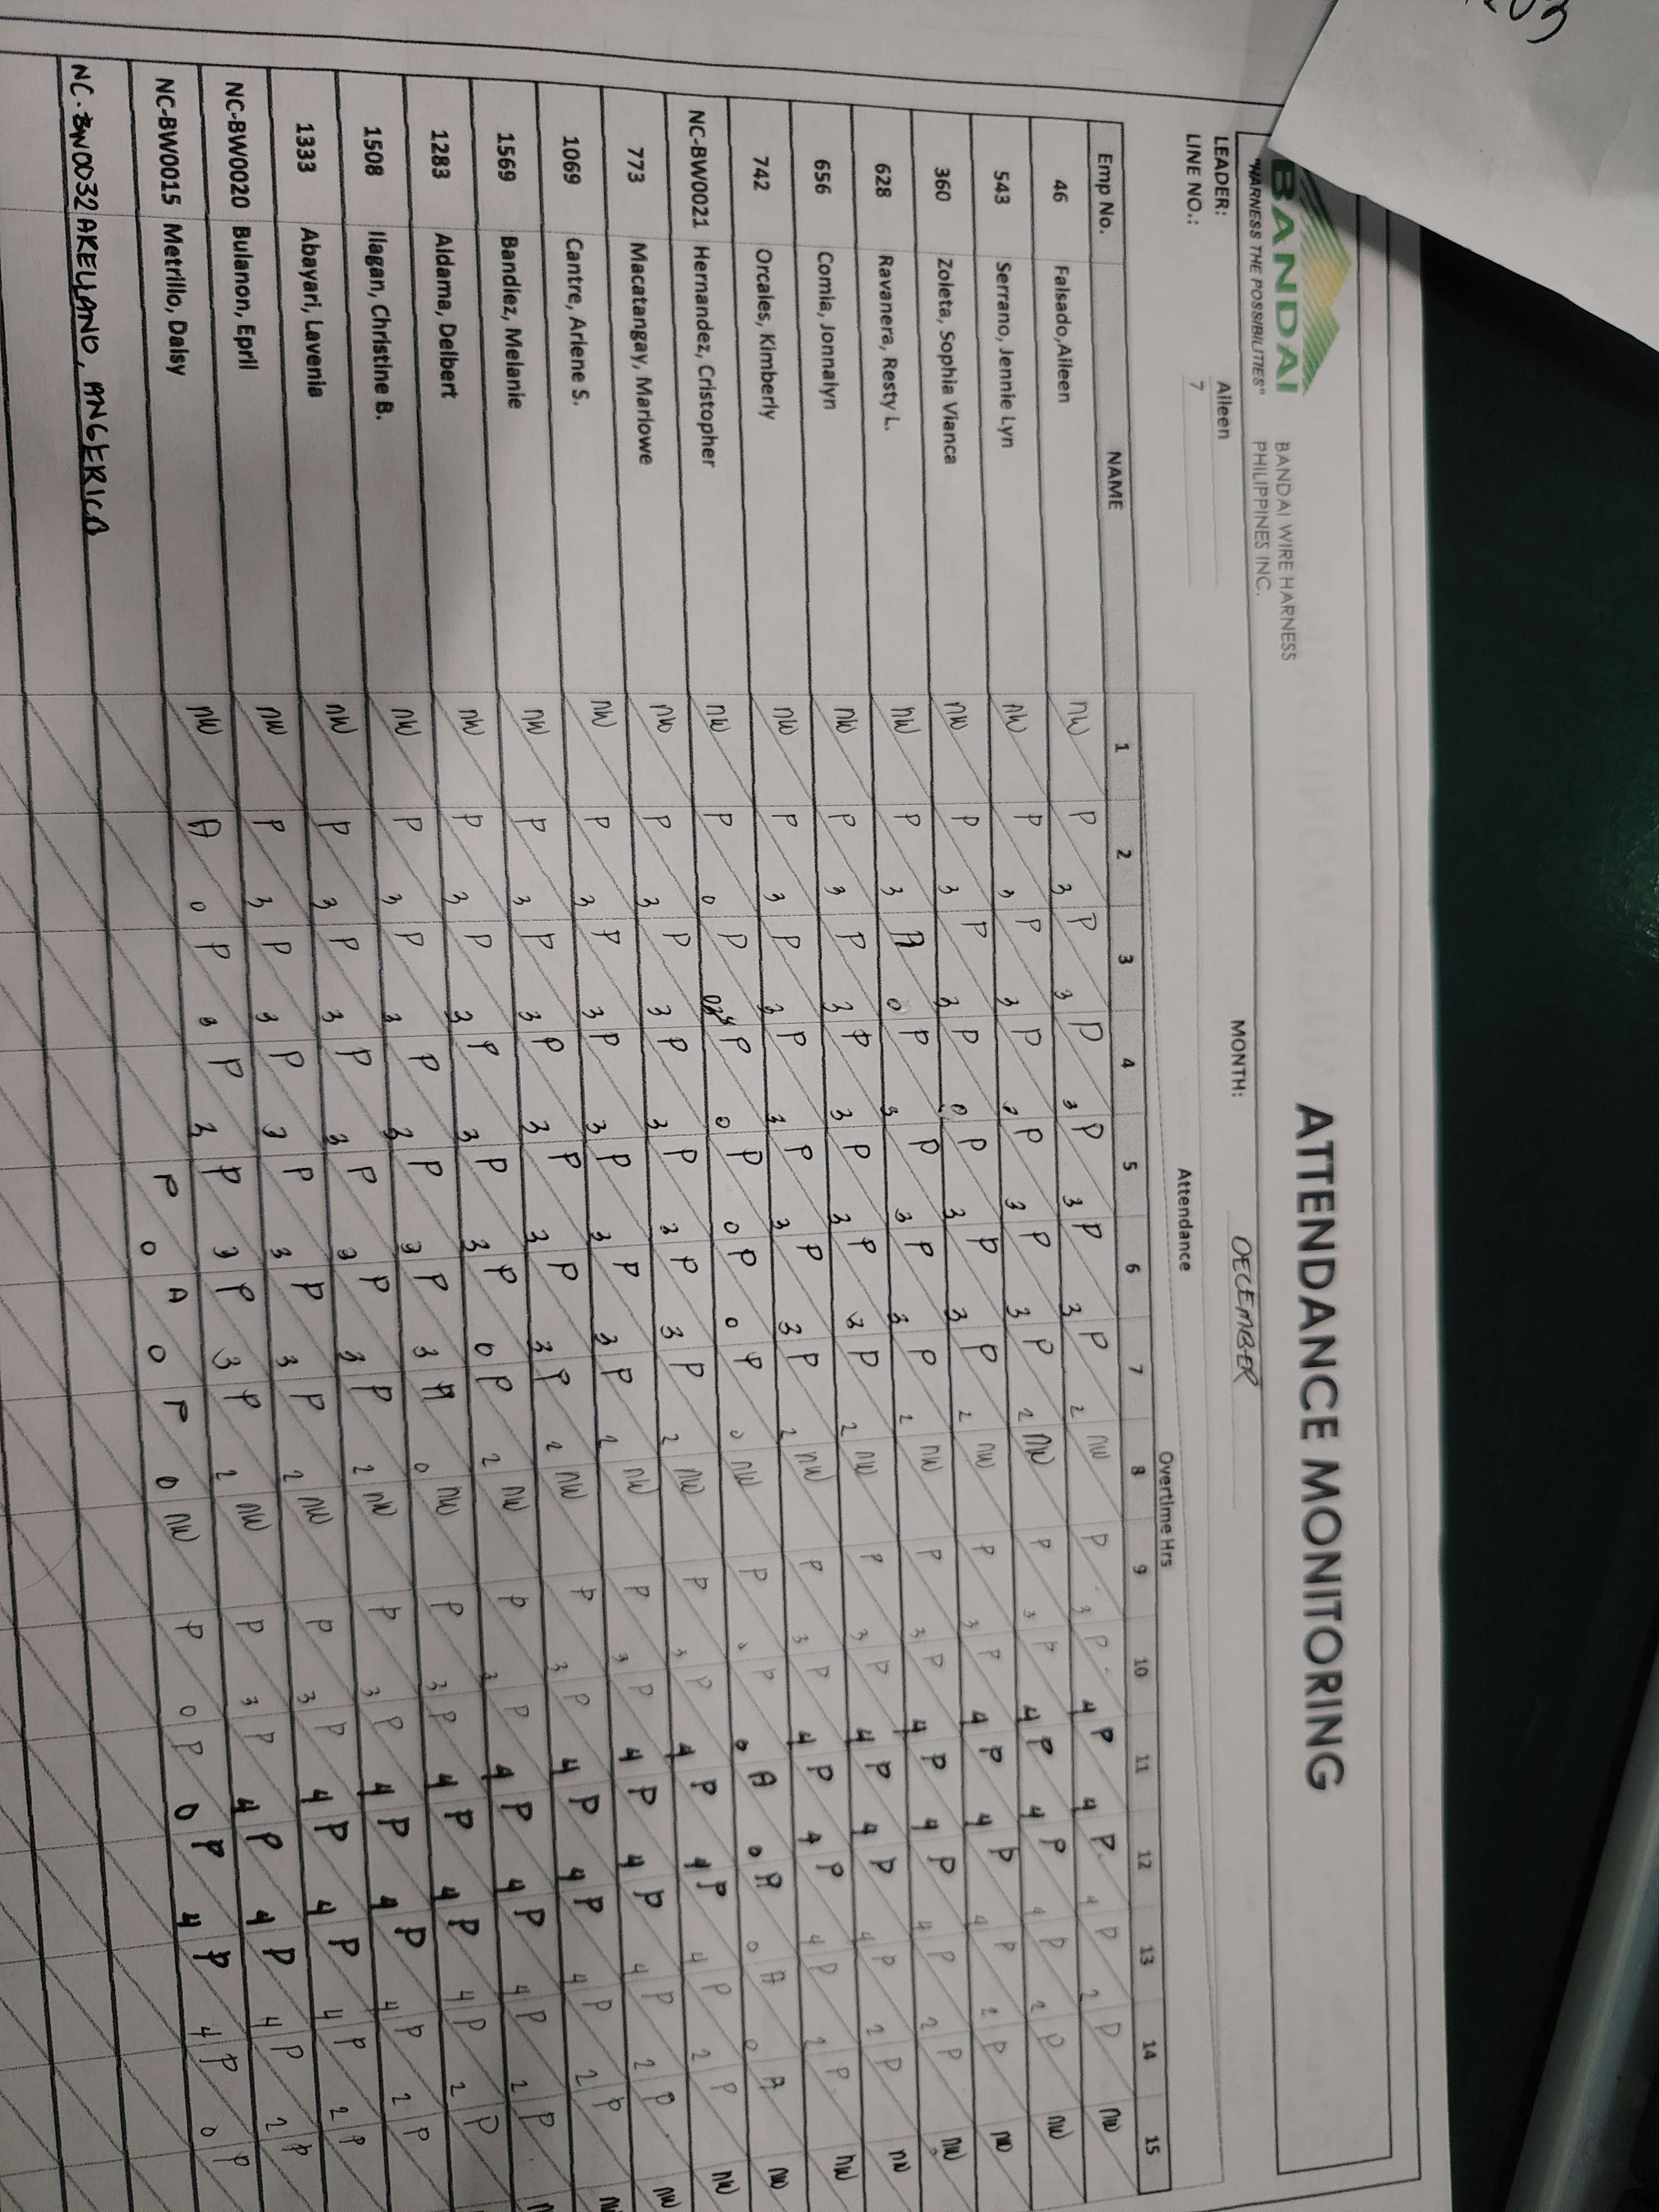 BANDAI
"HARNESS THE POSSIBILITIES"
BANDAI WIRE HARNESS
PHILIPPINES INC.
ATTENDANCE MONITORING
LEADER: Aileen MONTH: DECEMBER
LINE NO.: 7
Attendance Overtime Hrs
Emp No. NAME 1 2 3 4 5 6 7 8 9 10 11 12 13 14 15
46 Falsado,Aileen nw P 3 P 3 P 3 P 3 P 3 P 2 nw P 3 P 4 P 4 P 4 P 2 P nw
543 Serrano, Jennie Lyn nw P 3 P 3 P 3 P 3 P 3 P 2 nw P 3 P 4 P 4 P 4 P 2 P nw
360 Zoleta, Sophia Vianca nw P 3 P 3 P 0 P 3 P 3 P 2 nw P 3 P 4 P 4 P 4 P 2 P nw
628 Ravanera, Resty L. nw P 3 A 0 P 3 P 3 P 3 P 2 nw P 3 P 4 P 4 P 4 P 2 P nw
656 Comia, Jonnalyn nw P 3 P 3 P 3 P 3 P 3 P 2 nw P 3 P 4 P 4 P 4 P 2 P nw
742 Orcales, Kimberly nw P 3 P 3 P 3 P 3 P 3 P 2 nw P 3 P 4 P 4 P 4 P 2 P nw
NC-BW0021 Hernandez, Cristopher nw P 0 P P 0 P 0 P 0 P 0 nw P 0 P 0 A 0 A 0 A 0 A nw
773 Macatangay, Marlowe nw P 3 P 3 P 3 P 3 P 3 P 2 nw P 3 P 4 P 4 P 4 P 2 P nw
1069 Cantre, Arlene S. nw P 3 P 3 P 3 P 3 P 3 P 2 nw P 3 P 4 P 4 P 4 P 2 P nw
1569 Bandiez, Melanie nw P 3 P 3 P 3 P 3 P 3 P 2 nw P 3 P 4 P 4 P 4 P 2 P
1283 Aldama, Delbert nw P 3 P 3 P 3 P 3 P 0 P 2 nw P 3 P 4 P 4 P 4 P 2 P
1508 Ilagan, Christine B. nw P 3 P 3 P 3 P 3 P 3 A 0 nw P 3 P 4 P 4 P 4 P 2 P
1333 Abayari, Lavenia nw P 3 P 3 P 3 P 3 P 3 P 2 nw P 3 P 4 P 4 P 4 P 2 P
NC-BW0020 Bulanon, Epril nw P 3 P 3 P 3 P 3 P 3 P 2 nw P 3 P 4 P 4 P 4 P 2 P
NC-BW0015 Metrillo, Daisy nw A 0 P 3 P 3 P 3 P 3 P 2 nw P 3 P 4 P 4 P 4 P 2 P
NC-BW0032 AKELLANO, ANGERICA P 0 A 0 P 0 nw P 0 P 0 P 4 P 4 P 0 P